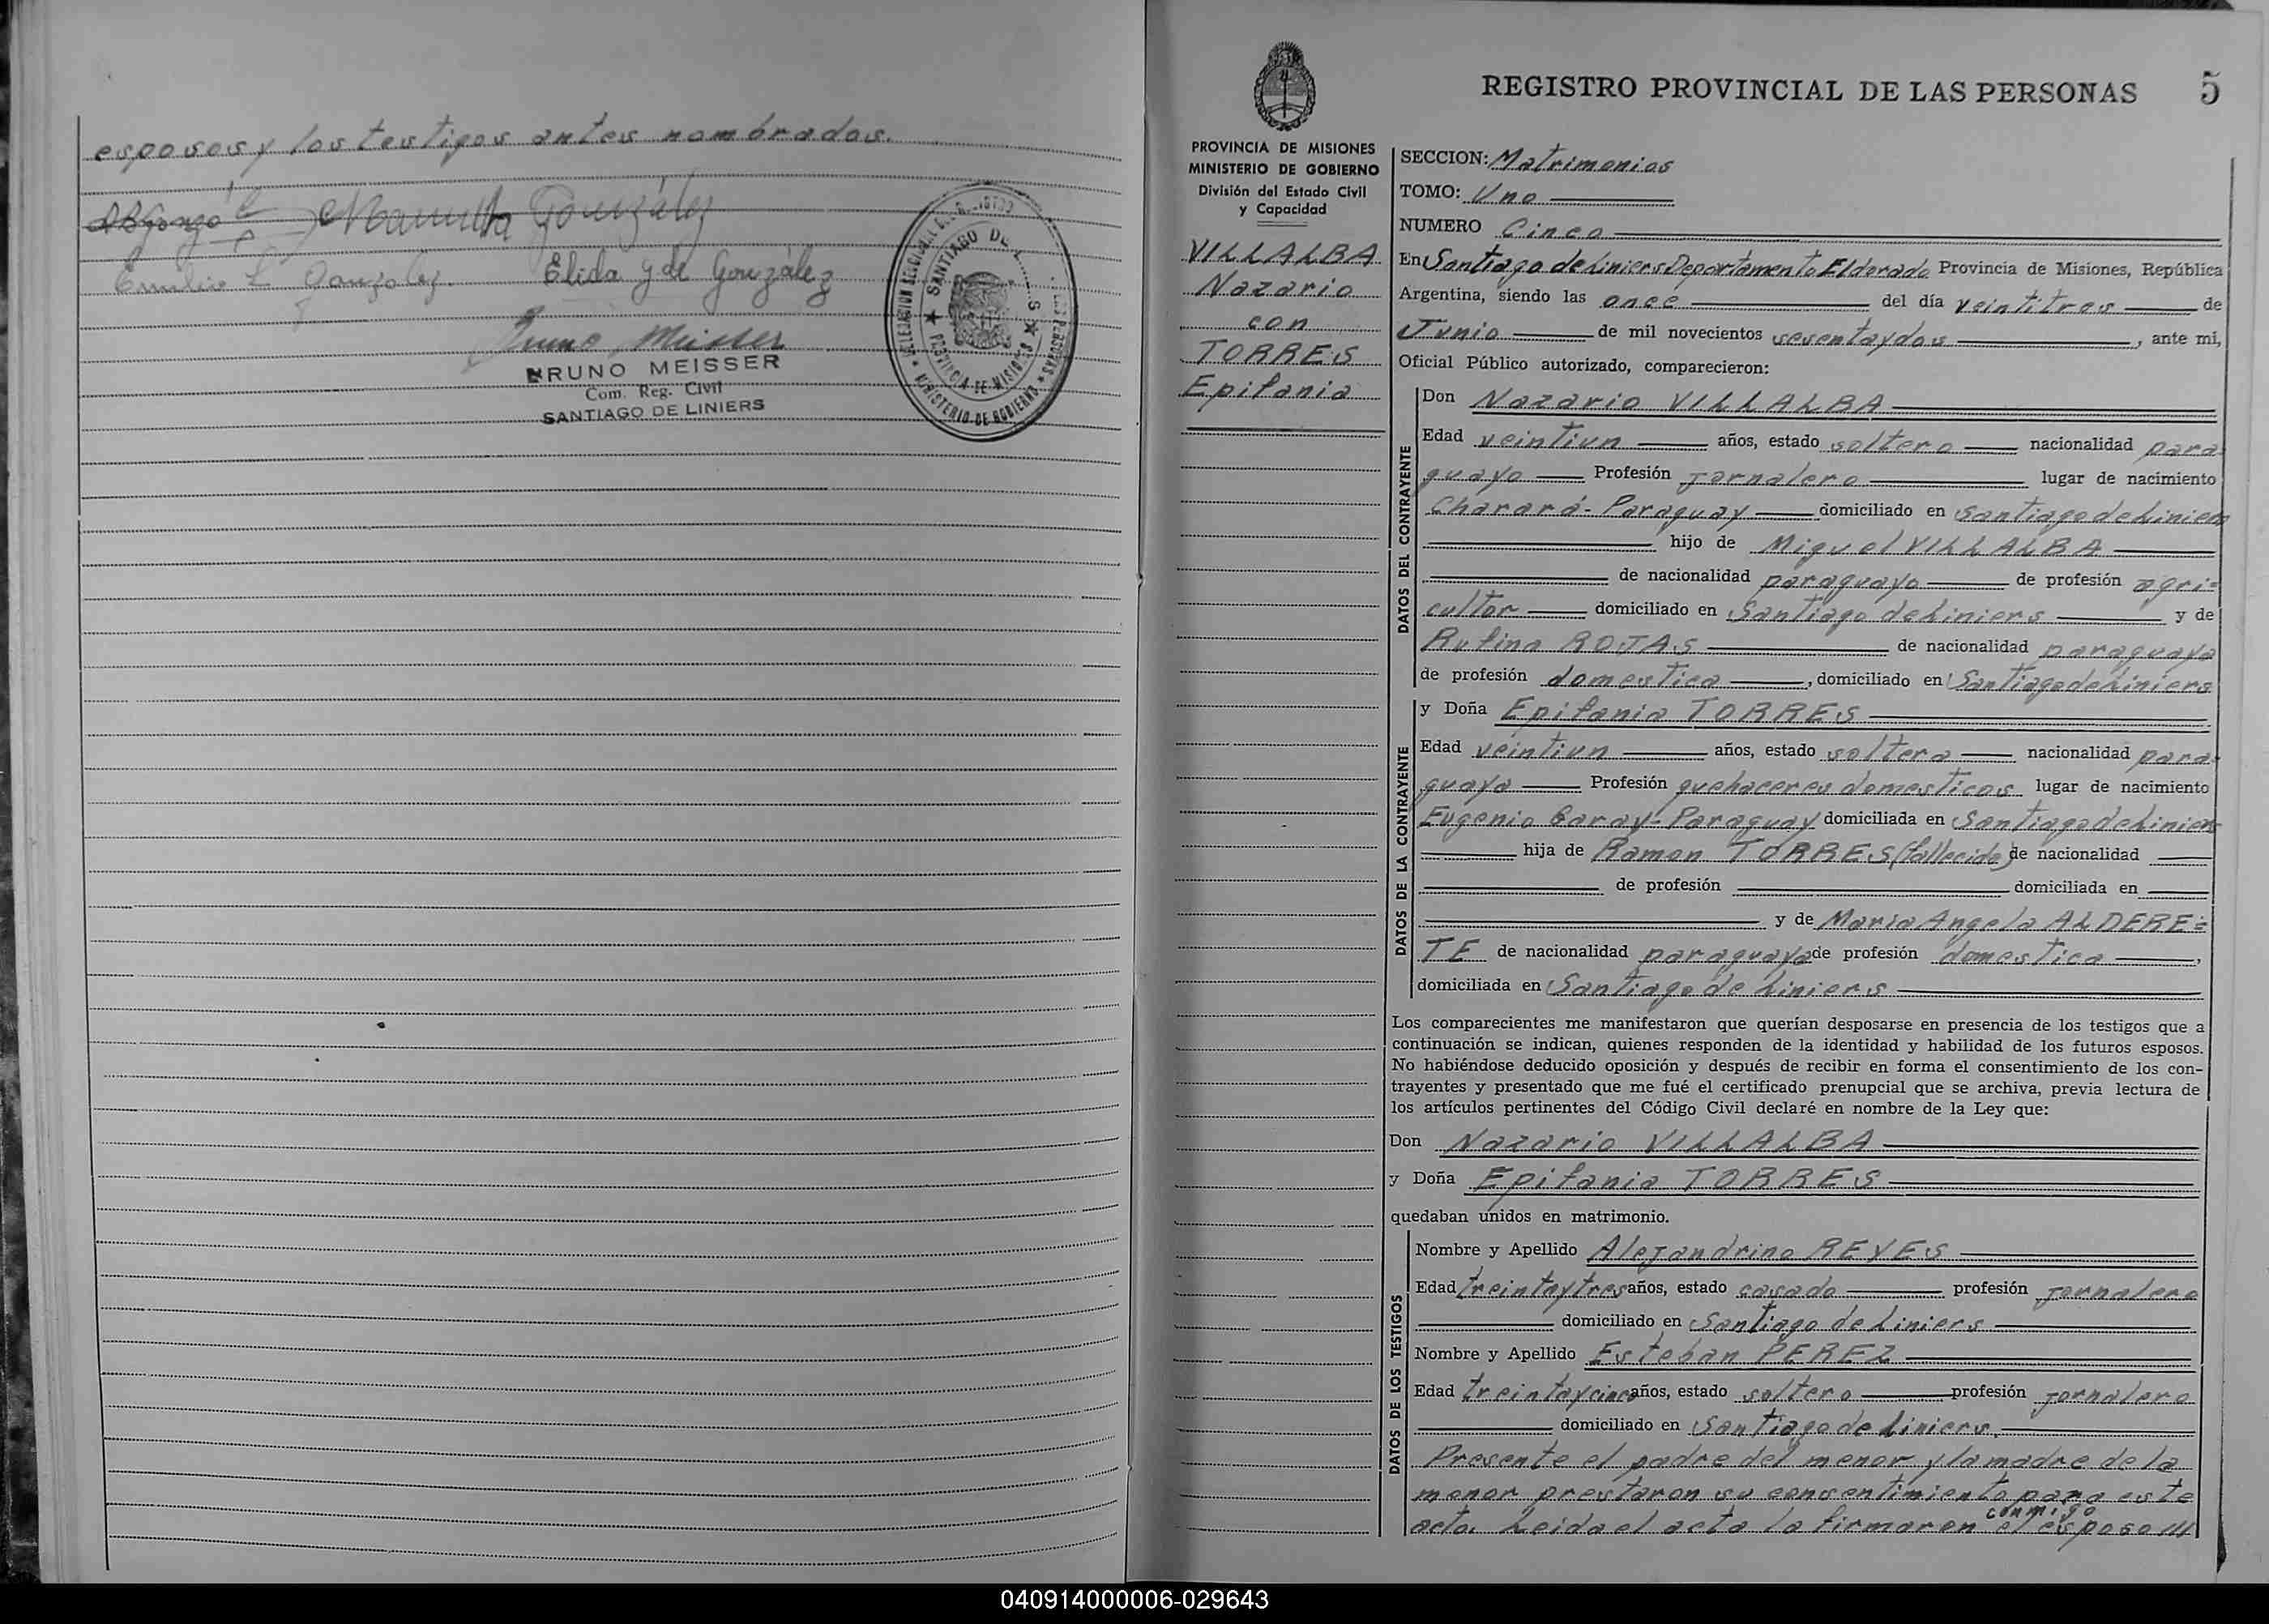 esposos y los testigos antes nombrados.
Manuela González
Emilio L. Gonzalez. Elida G de González
Bruno Meisser
BRUNO MEISSER
Com. Reg. Civil
SANTIAGO DE LINIERS
MINISTERIO DE GOBIERNO
PROVINCIA DE MISIONES
REGISTRO PROVINCIAL DE LAS PERSONAS 5
PROVINCIA DE MISIONES
MINISTERIO DE GOBIERNO
División del Estado Civil
y Capacidad
VILLALBA
Nazario
con
TORRES
Epifania
SECCION: Matrimonios
TOMO: Uno
NUMERO Cinco
En Santiago de Liniers Departamento Eldorado Provincia de Misiones, República
Argentina, siendo las once del día veintitres de
Junio de mil novecientos sesentaydos, ante mí,
Oficial Público autorizado, comparecieron:
DATOS DEL CONTRAYENTE
Don Nazario VILLALBA
Edad veintiun años, estado soltero nacionalidad para-
guayo Profesión Jornalero lugar de nacimiento
Charará-Paraguay domiciliado en Santiago de Liniers
hijo de Miguel VILLALBA
de nacionalidad paraguayo de profesión agri=
cultor domiciliado en Santiago de Liniers y de
Rufina ROJAS de nacionalidad paraguaya
de profesión domestica, domiciliado en Santiago de Liniers
DATOS DE LA CONTRAYENTE
y Doña Epifania TORRES
Edad veintiun años, estado soltera nacionalidad para-
guaya Profesión quehaceres domesticos lugar de nacimiento
Eugenio Garay-Paraguay domiciliada en Santiago de Liniers
hija de Ramon TORRES (fallecido) de nacionalidad
de profesión domiciliada en
y de Maria Angela ALDERE=
TE de nacionalidad paraguaya de profesión domestica,
domiciliada en Santiago de Liniers
Los comparecientes me manifestaron que querían desposarse en presencia de los testigos que a
continuación se indican, quienes responden de la identidad y habilidad de los futuros esposos.
No habiéndose deducido oposición y después de recibir en forma el consentimiento de los con-
trayentes y presentado que me fué el certificado prenupcial que se archiva, previa lectura de
los artículos pertinentes del Código Civil declaré en nombre de la Ley que:
Don Nazario VILLALBA
y Doña Epifania TORRES
quedaban unidos en matrimonio.
DATOS DE LOS TESTIGOS
Nombre y Apellido Alejandrino REYES
Edad treintaytres años, estado casado profesión Jornalero
domiciliado en Santiago de Liniers
Nombre y Apellido Esteban PEREZ
Edad treintaycinco años, estado soltero profesión Jornalero
domiciliado en Santiago de Liniers.
Presente el padre del menor y la madre de la
menor prestaron su consentimiento para este
conmigo
acto. Leida el acta la firmaron el esposo ///
040914000006-029643